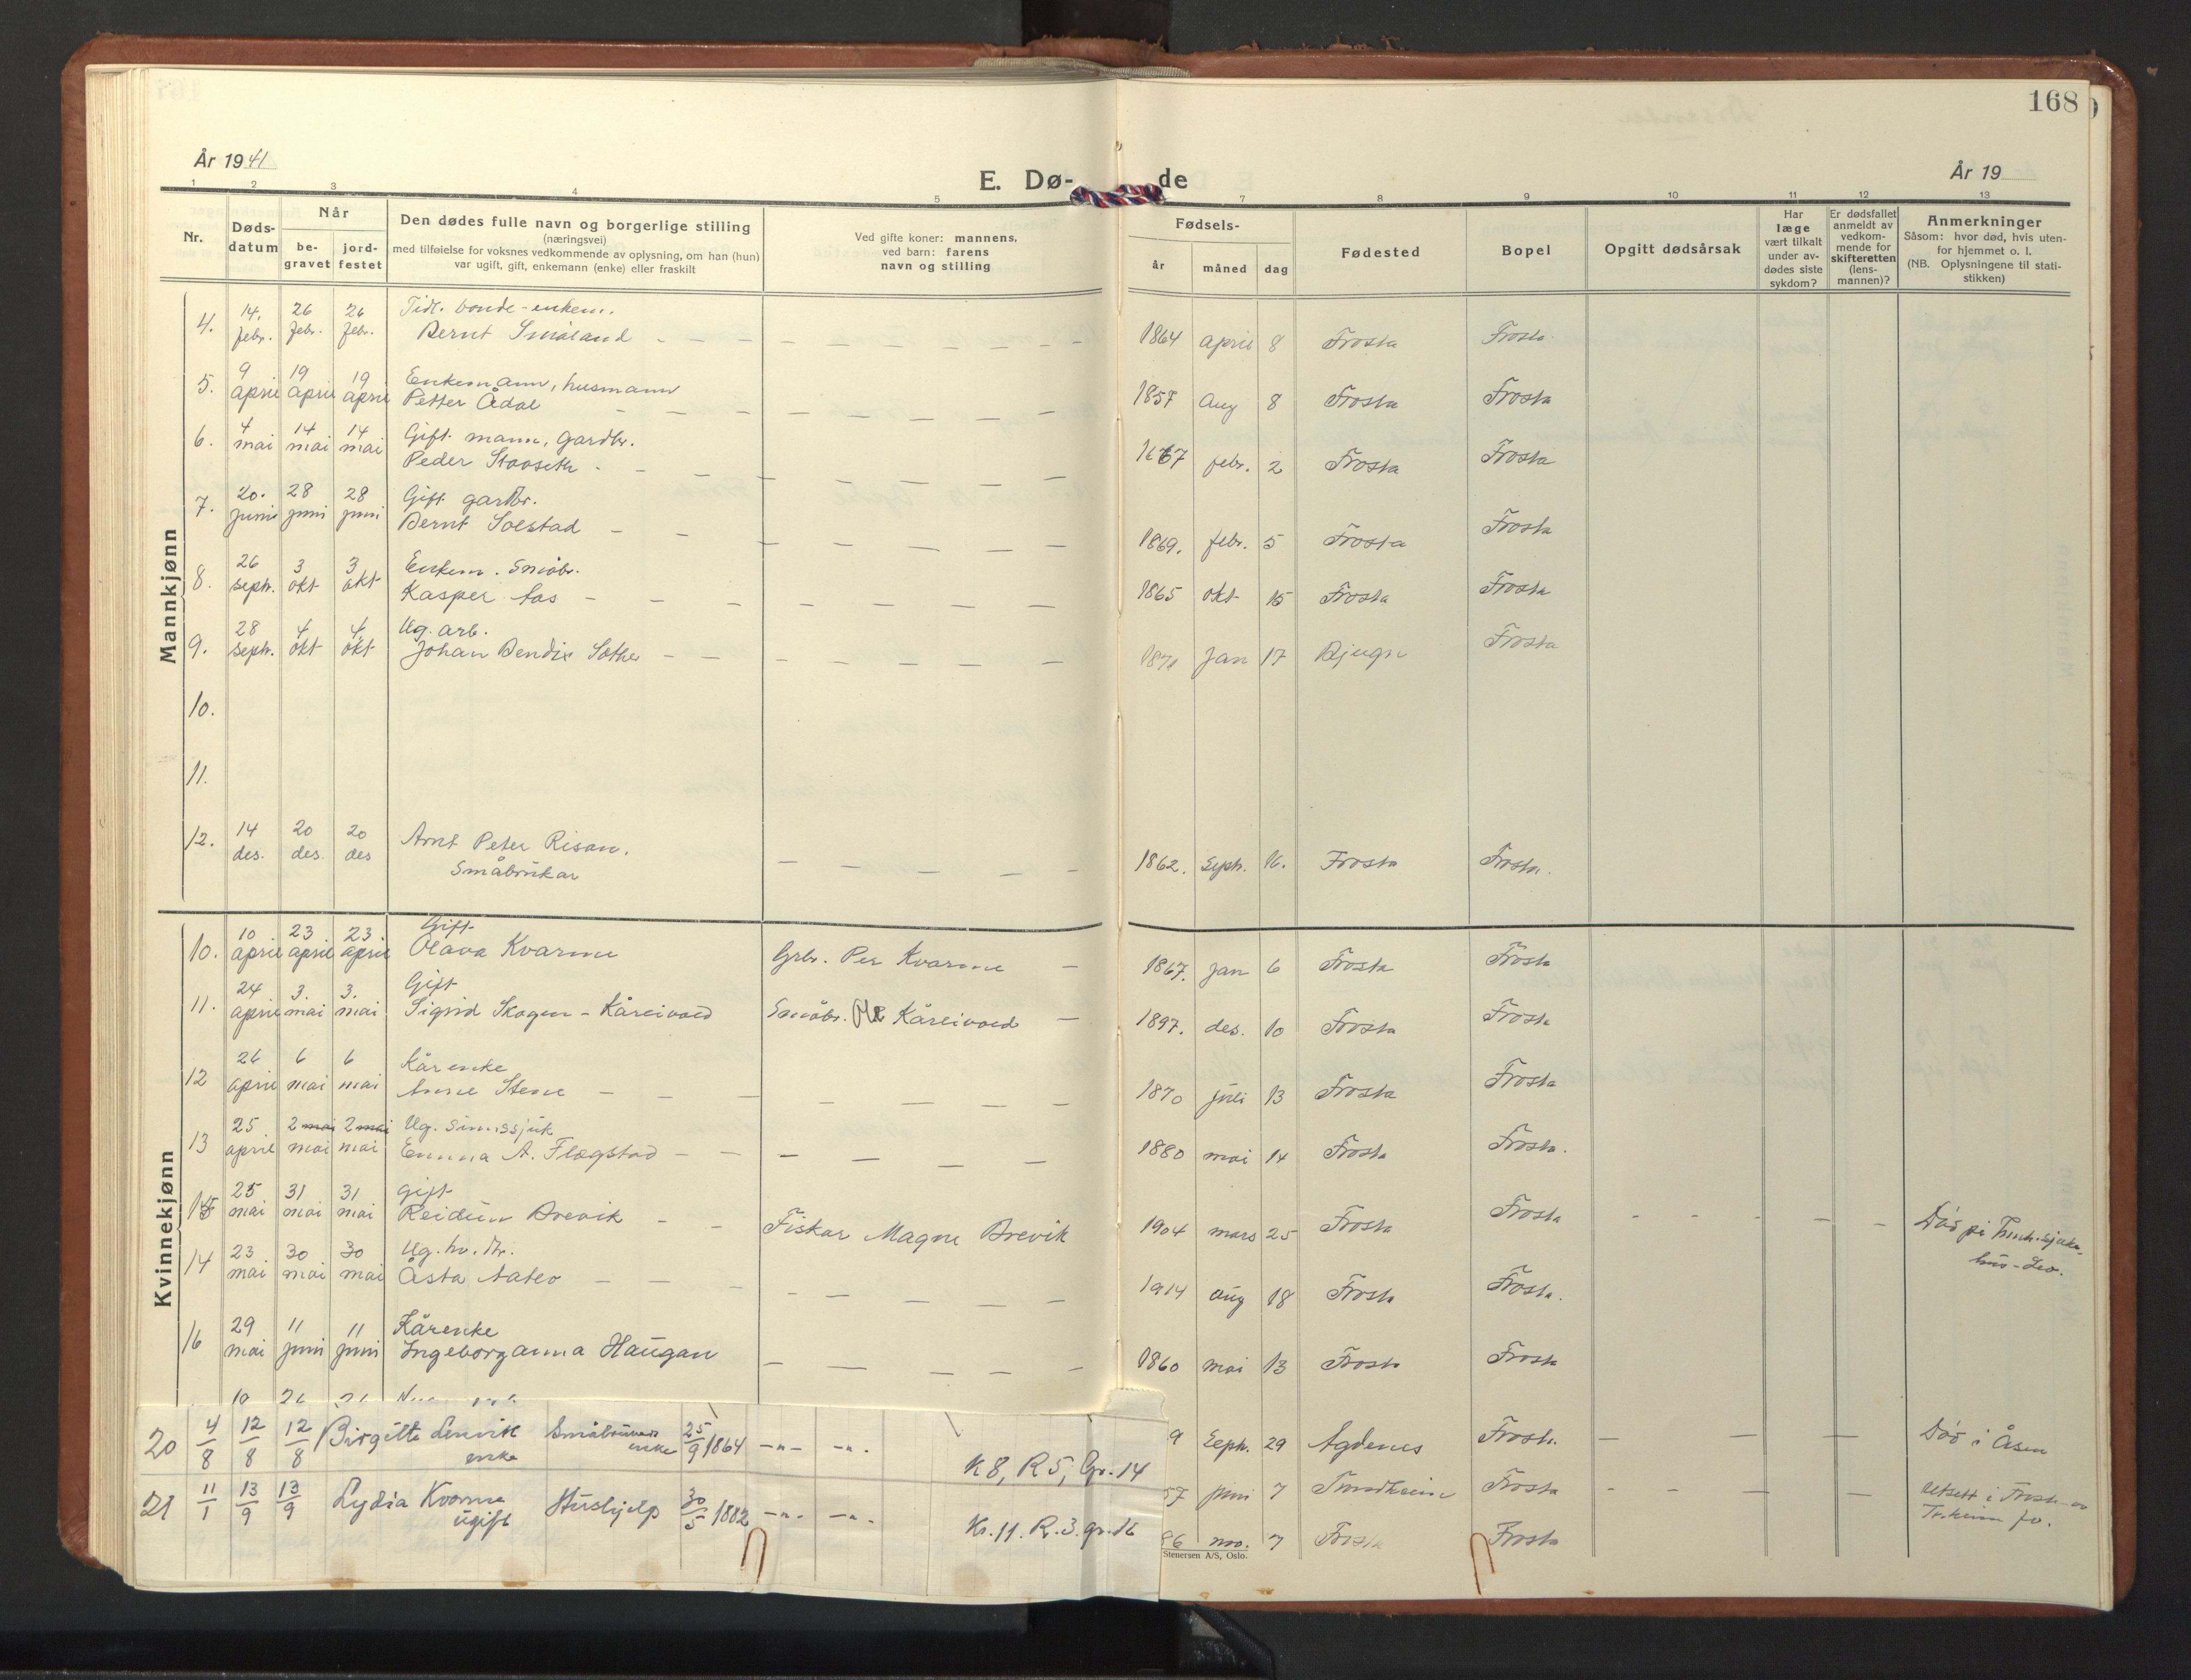 168
År 1941
E. Dø-
de
År 19
1 2 3 4 5 7 8 9 10 11 12 13
Nr.
Døds-
datum
Når
be-
gravet
jord-
festet
Den dødes fulle navn og borgerlige stilling
(næringsvei)
med tilføielse for voksnes vedkommende av oplysning, om han (hun)
var ugift, gift, enkemann (enke) eller fraskilt
Ved gifte koner: mannens,
ved barn: farens
navn og stilling
Fødsels-
år
måned
dag
Fødested
Bopel
Opgitt dødsårsak
Har
læge
vært tilkalt
under av-
dødes siste
sykdom?
Er dødsfallet
anmeldt av
vedkom-
mende for
skifteretten
(lens-
mannen)?
Anmerkninger
Såsom: hvor død, hvis uten-
for hjemmet o. l.
(NB. Oplysningene til stati-
stikken)
Mannkjønn
14. 26 26 Tidl. bonde-enkem.
4. febr. febr. febr. Bernt Småland - - - 1864 april 8 Frosta Frosta
9 19 19 Enkemann, husmann
5. april april april Petter Ådal - - - 1857 Aug 8 Frosta Frosta
4 14 14 Gift mann, gardbr.
6. mai mai mai Peder Stooseth - - - 1867 febr. 2 Frosta Frosta
20. 28 28 Gift gardbr.
7. juni juni juni Bernt Solstad - - - 1869. febr. 5 Frosta Frosta
26 3 3 Enkem. Småbr.
8. sept. okt okt Kasper Aas - - - 1865 okt 15 Frosta Frosta
28 4 4 Ug. arb.
9. sept. okt okt Johan Bendix Sæther - - - 1871 jan 17 Bjugn Frosta
10.
11.
14 20 20
12. des. des. des Arnt Peter Risan. - - - 1862. sept. 16. Frosta Frosta.
Småbrukar
Kvinnekjønn
10 23 23. Gift
10. april april april Olava Kvarme Grbr. Per Kvarme - 1867. jan 6 Frosta Frosta
24 3. 3. Gift
11. april mai mai Sigrid Skogen - Kåreivold Småbr. Ole Kåreivold - 1897. des. 10 Frosta Frosta
26 6 6 Kårenke
12 april mai mai Anne Stene - - - 1870 juli 13 Frosta Frosta
25 2 mai 2 mai Ug. sinnssjuk
13 april mai mai Emma A. Flagstad - - - 1880 mai 14 Frosta Frosta.
25 31 31 gift
15 mai mai mai Reidun Brevik - - Fiskar Magne Brevik 1904 mars 25 Frosta Frosta - - - Død på Innh. sjuke-
hus - Lev.
23 30 30 Ug. hv. dtr.
14 mai mai mai Åsta Aatlo - - - 1914 aug 18 Frosta Frosta.
29 11 11 Kårenke
16 mai juni juni Ingeborganna Haugan - - - 1860 mai 13 Frosta Frosta
20 4/8 12/8 12/8 Birgitte Lenvik Småbrukers 25/9 1864 -"- -"-
enke enke
K 8, R 5, Gr. 14
9 Sept. 29 Agdenes Frosta. - - - Død i Åsen
21 11/1 13/9 13/9 Lydia Kvarme Hushjelp 30/5 1882 -"- -"-
ugift
Kv. 11. R. 3. gr. 16
57 juni 7 Trondheim Frosta - - - Utsett i Frosta
Tr.heim
86 nov. 7 Frosta Frosta
Stenersen A/S, Oslo.